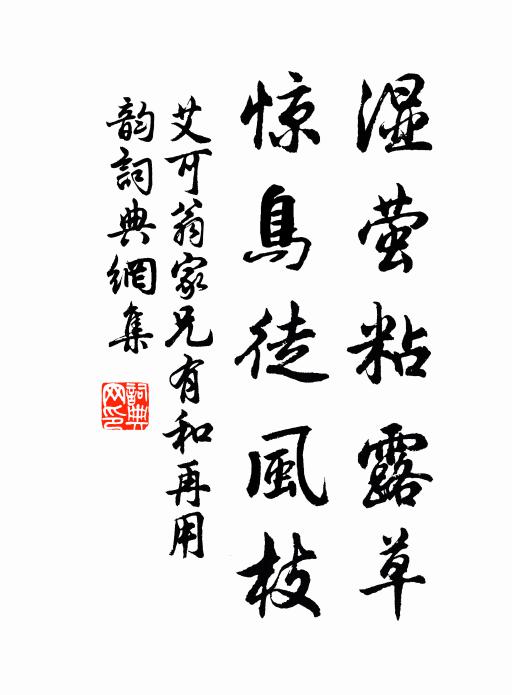 湿萤粘露草
惊鳥徒風枝
艾可翁家兄有和再用
韵詞典網集
詞典网印